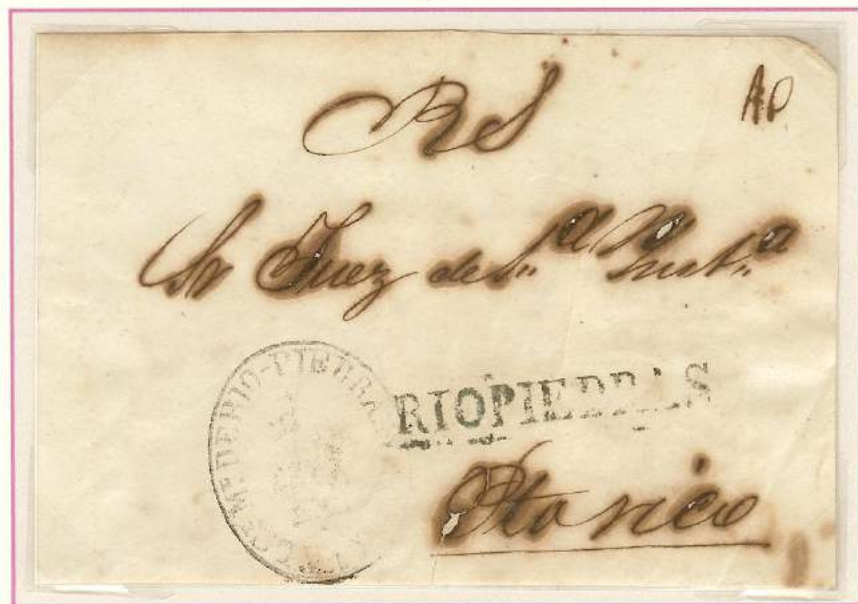 RS
AD
Sr Juez de 1ª Instª
DE RIO-PIEDRA
RIOPIEDRAS
Pto rico